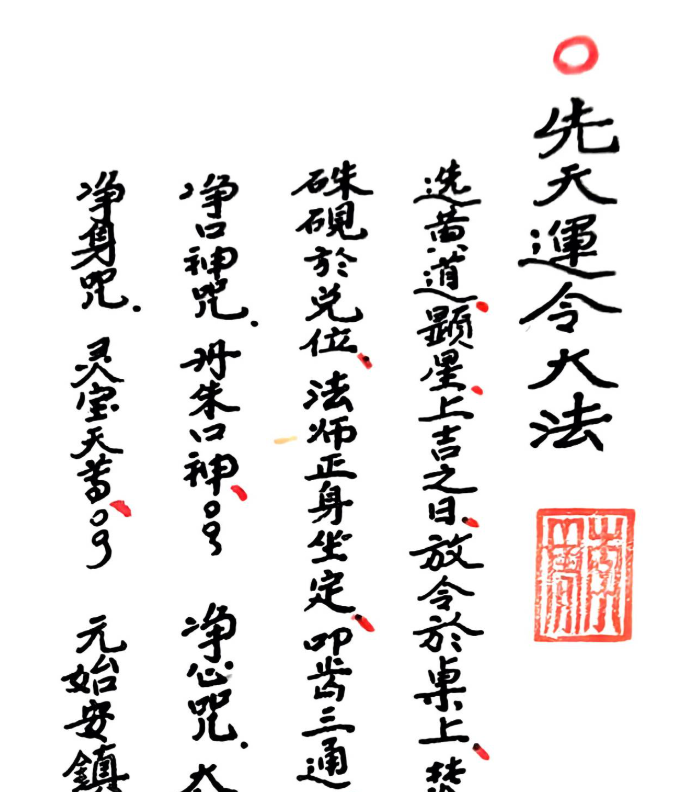 先天運令大法
选黄道顕星上吉之日放令於桌上
硃硯於兑位法师正身坐定叩齿三通
净口神咒 丹朱口神 净心咒 太
净身咒 灵宝天尊 元始安鎮